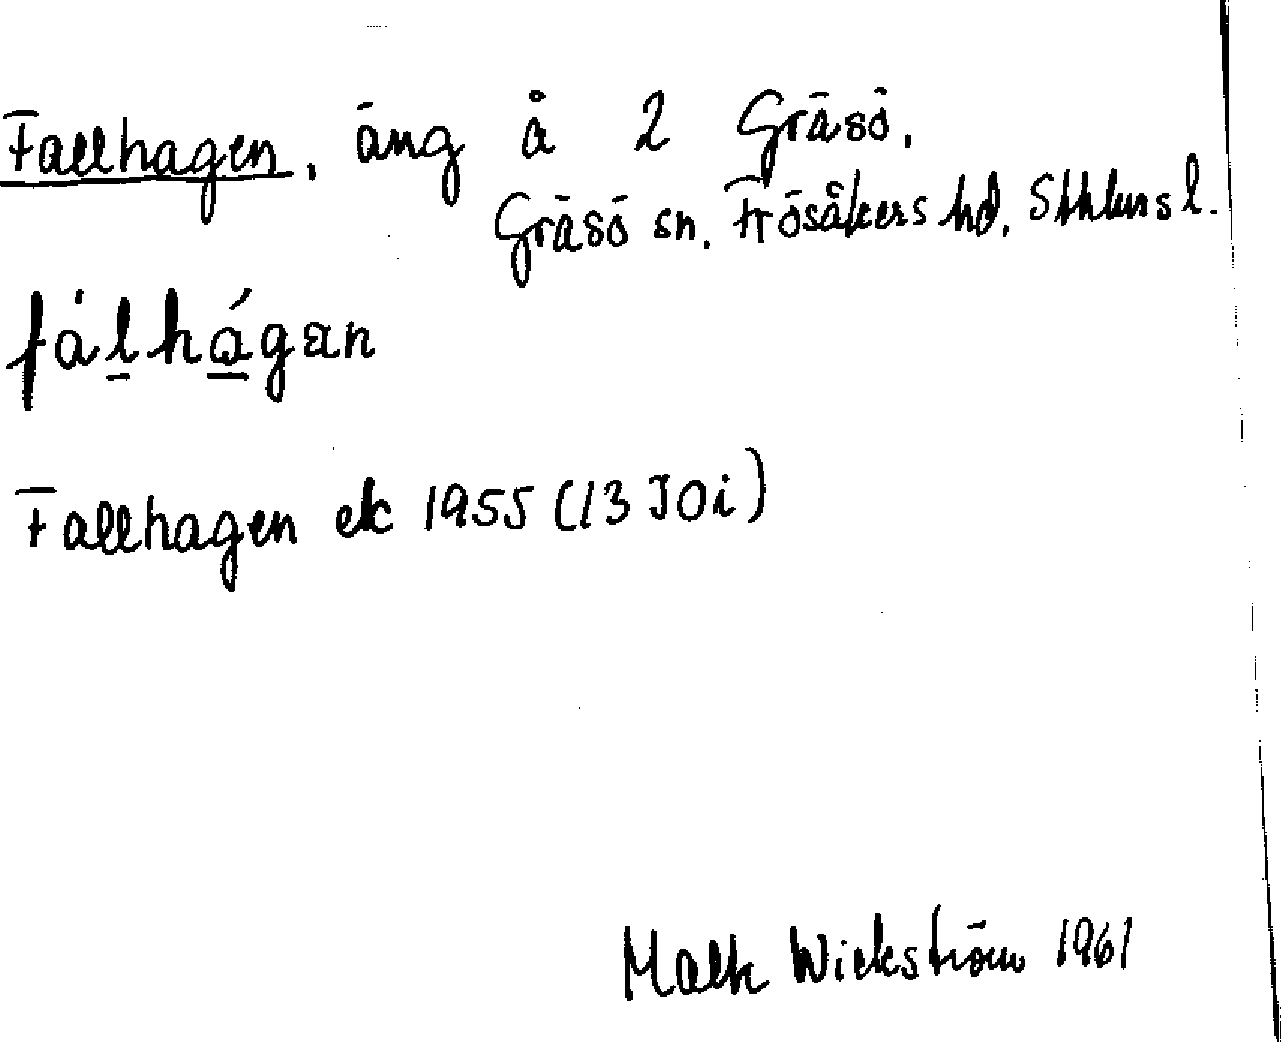 Fallhagen, äng å 2 Gräsö,
Gräsö sn. Frösåkers hd. Sthlms l.
fálhágæn
Fallhagen ek 1955 (13 JOi)
Wickström 1961